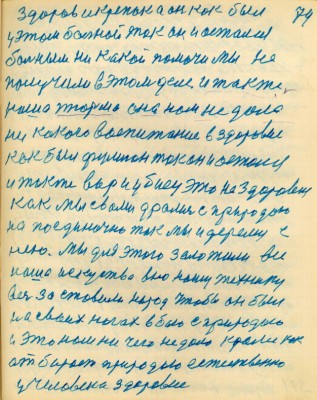 здоров и крепок а он как был 74
у этом больной так он и остался
больным ни какой помочи мы не
получили в этом деле. и также,
наша тюрьма она нам не дала
ни какого воспитание в здоровье
как был шпион так он и остался
и также вор и убиец это на здоровеи
как мы с вами дрались с природою
на поединочно так мы и деремся с
нею. мы для этого заложили все
наше искуство всю нашу технику
вся заставили народ чтобы он был
на своих ногах в бою с природою
и это нам ни чего не дало кроме как
отбирает природою естественно
у человека здоровие